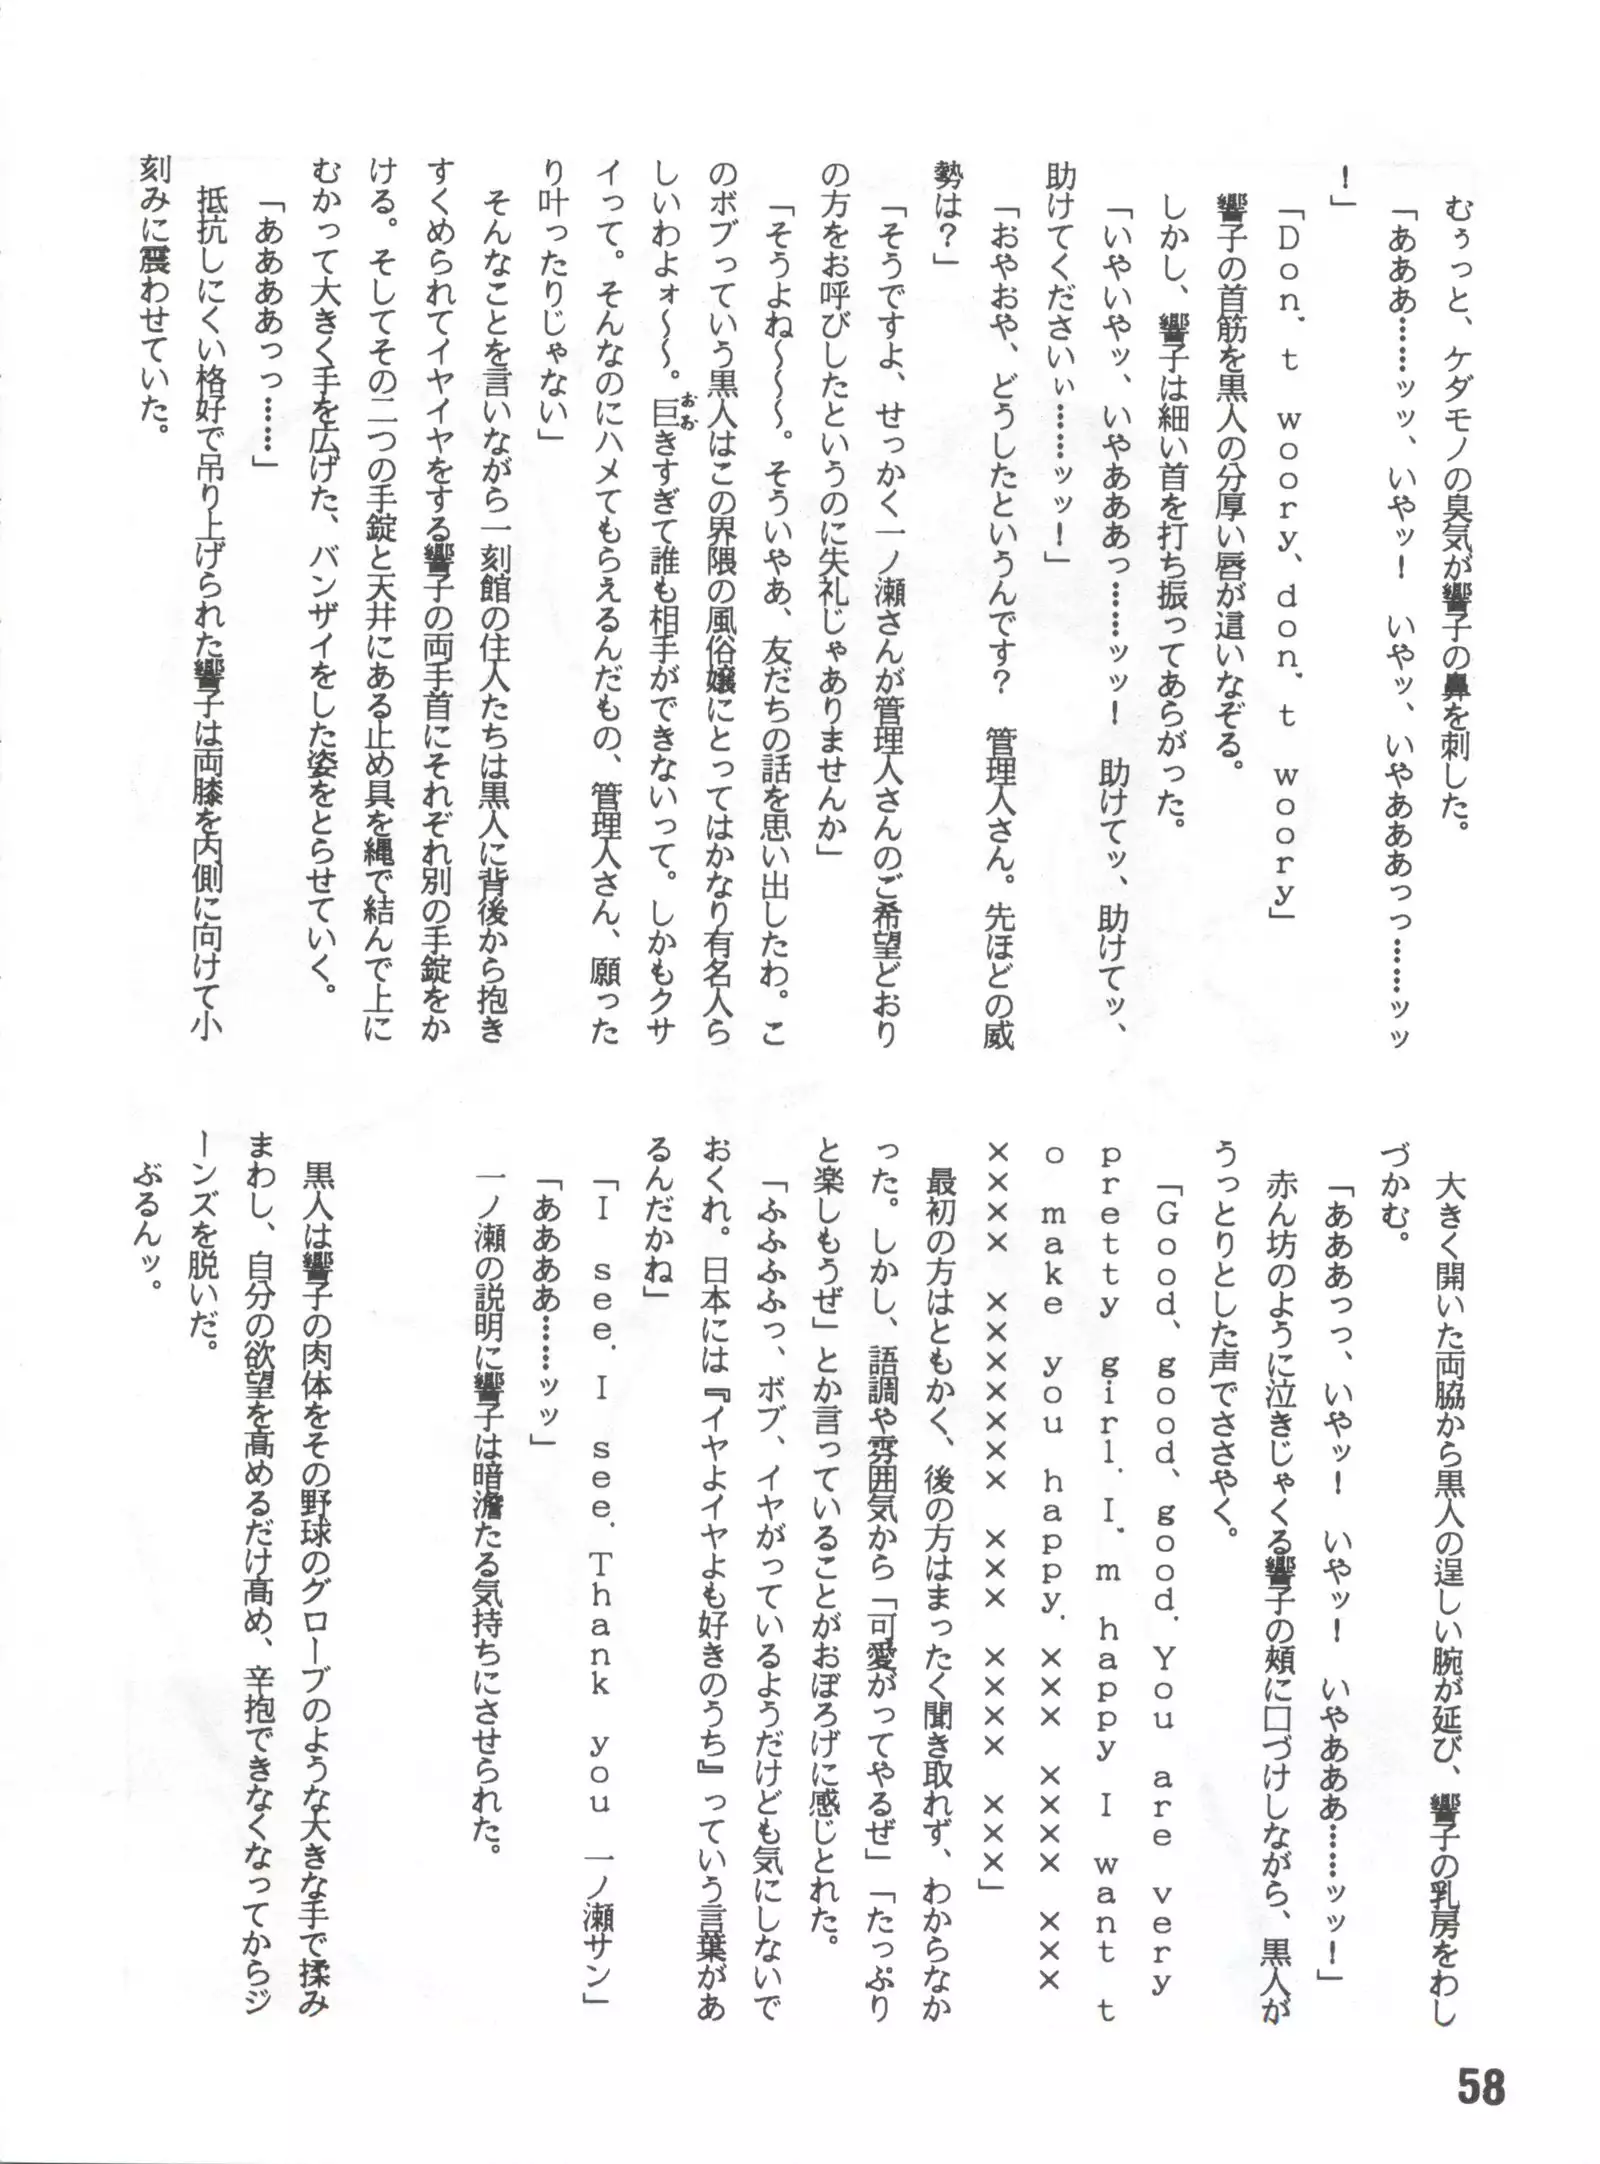 むぅっと、ケダモノの臭気が響子の鼻を刺した。
「あああ……ッッ、いやッ！　いやッ、いやあああっっ……ッッ
！」
「Don't woory、don't woory」
響子の首筋を黒人の分厚い唇が這いなぞる。
しかし、響子は細い首を打ち振ってあらがった。
「いやいやッ、いやあああっ……ッッ！　助けてッ、助けてッ、
助けてくださいぃ……ッッ！」
「おやおや、どうしたというんです？　管理人さん。先ほどの威
勢は？」
「そうですよ、せっかく一ノ瀬さんが管理人さんのご希望どおり
の方をお呼びしたというのに失礼じゃありませんか」
「そうよね〜〜〜。そういやあ、友だちの話を思い出したわ。こ
のボブっていう黒人はこの界隈の風俗嬢にとってはかなり有名人ら
しいわよォ〜〜。巨（おお）きすぎて誰も相手ができないって。しかもクサ
イって。そんなのにハメてもらえるんだもの、管理人さん、願った
り叶ったりじゃない」
そんなことを言いながら一刻館の住人たちは黒人に背後から抱き
すくめられてイヤイヤをする響子の両手首にそれぞれ別の手錠をか
ける。そしてその二つの手錠と天井にある止め具を縄で結んで上に
むかって大きく手を広げた、バンザイをした姿をとらせていく。
「ああああっっ……」
抵抗しにくい格好で吊り上げられた響子は両膝を内側に向けて小
刻みに震わせていた。
大きく開いた両脇から黒人の逞しい腕が延び、響子の乳房をわし
づかむ。
「あああっっ、いやッ！　いやッ！　いやあああ……ッッ！」
赤ん坊のように泣きじゃくる響子の頬に口づけしながら、黒人が
うっとりとした声でささやく。
「Good、good、good. You are very
pretty girl. I'm happy I want t
o make you happy. ××× ×××× ×××
×××× ××××××× ××× ×××× ×××」
最初の方はともかく、後の方はまったく聞き取れず、わからなか
った。しかし、語調や雰囲気から「可愛がってやるぜ」「たっぷり
と楽しもうぜ」とか言っていることがおぼろげに感じとれた。
「ふふふふっ、ボブ、イヤがっているようだけども気にしないで
おくれ。日本には『イヤよイヤよも好きのうち』っていう言葉があ
るんだかね」
「I see. I see. Thank you 一ノ瀬サン」
「ああああ……ッッ」
一ノ瀬の説明に響子は暗澹たる気持ちにさせられた。
黒人は響子の肉体をその野球のグローブのような大きな手で揉み
まわし、自分の欲望を高めるだけ高め、辛抱できなくなってからジ
ーンズを脱いだ。
ぶるんッ。
58